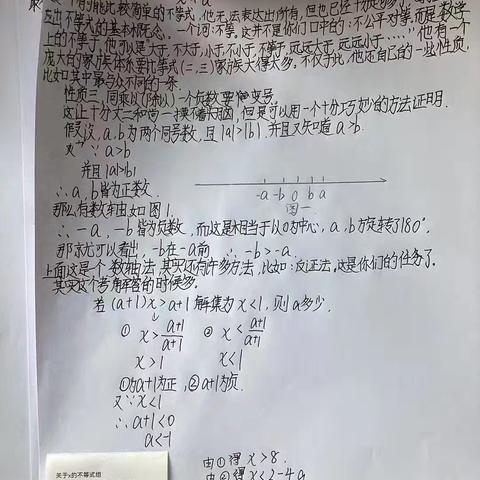 有可能比较简单的不等式,他无法表达出所有,但也已经十
出不等式的基本概念。一个词:不等。这并不是你们口中的:不公平对等,而是数学
上的不等于,他可以是大于,不大于,小于,不小于,不等于,远远大于,远远小于……"他有一个
庞大的家族体系,要比等式(二,三)家族大得太多。不仅于此,他还自己的一些性质,
比如其中第与众不同的一条。
性质三,同乘以(除以)一个负数要变号。
这让十分丈二和尚一摸不着头脑,但是可以用一个十分巧妙的方法证明.
假设,a,b为两个同号数,且|a|>|b|.并且又知道a>b.
又∵a>b
并且|a|>|b|
∴a,b皆为正数.
-a -b 0 b a
那么有数轴如图1.
图一
∴-a,-b皆为负数,而这是相当于以0为中心,a,b方旋转了180°.
那就可以看出,-b在-a前 ∴-b>-a.
上面这是个数轴法,其实还有许多方法,比如:反证法,这是你们的任务了。
其实这个考解答的时候多。
若(a+1)x>a+1解集为x<1,则a多少.
① x>\frac{a+1}{a+1} ② x<\frac{a+1}{a+1}
x>1 x<1
①为a+1为正,②a+1为负
又∵x<1
∴a+1<0
a<-1
由①得x>8.
关于x的不等式组
由②得x<2-4a